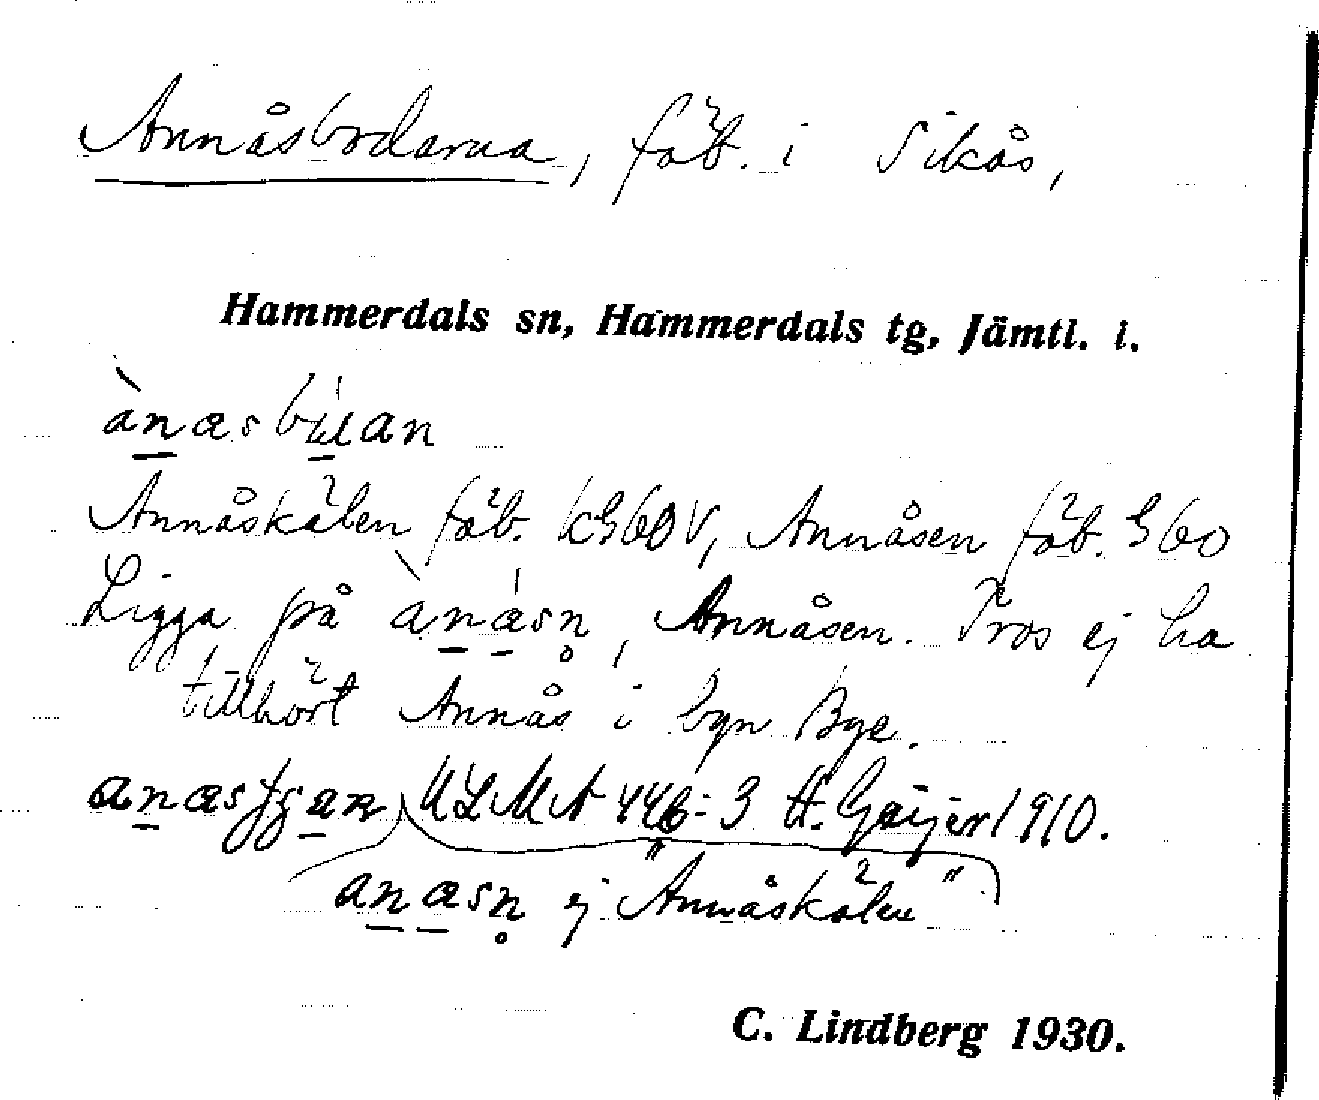 Annåsbodarna, fäb. i Sikås,
Hammerdals sn, Hammerdals tg, Jämtl. l.
Annåskälen fäb. Annåsen fäb. G60
Ligga på ànásn, Annåsen. Tros ej ha
tillhört Annås i byn Bye.
ULMA 446:3 H. Geijer 1910.
anæsn ej "Annåskälen"
C. Lindberg 1930.